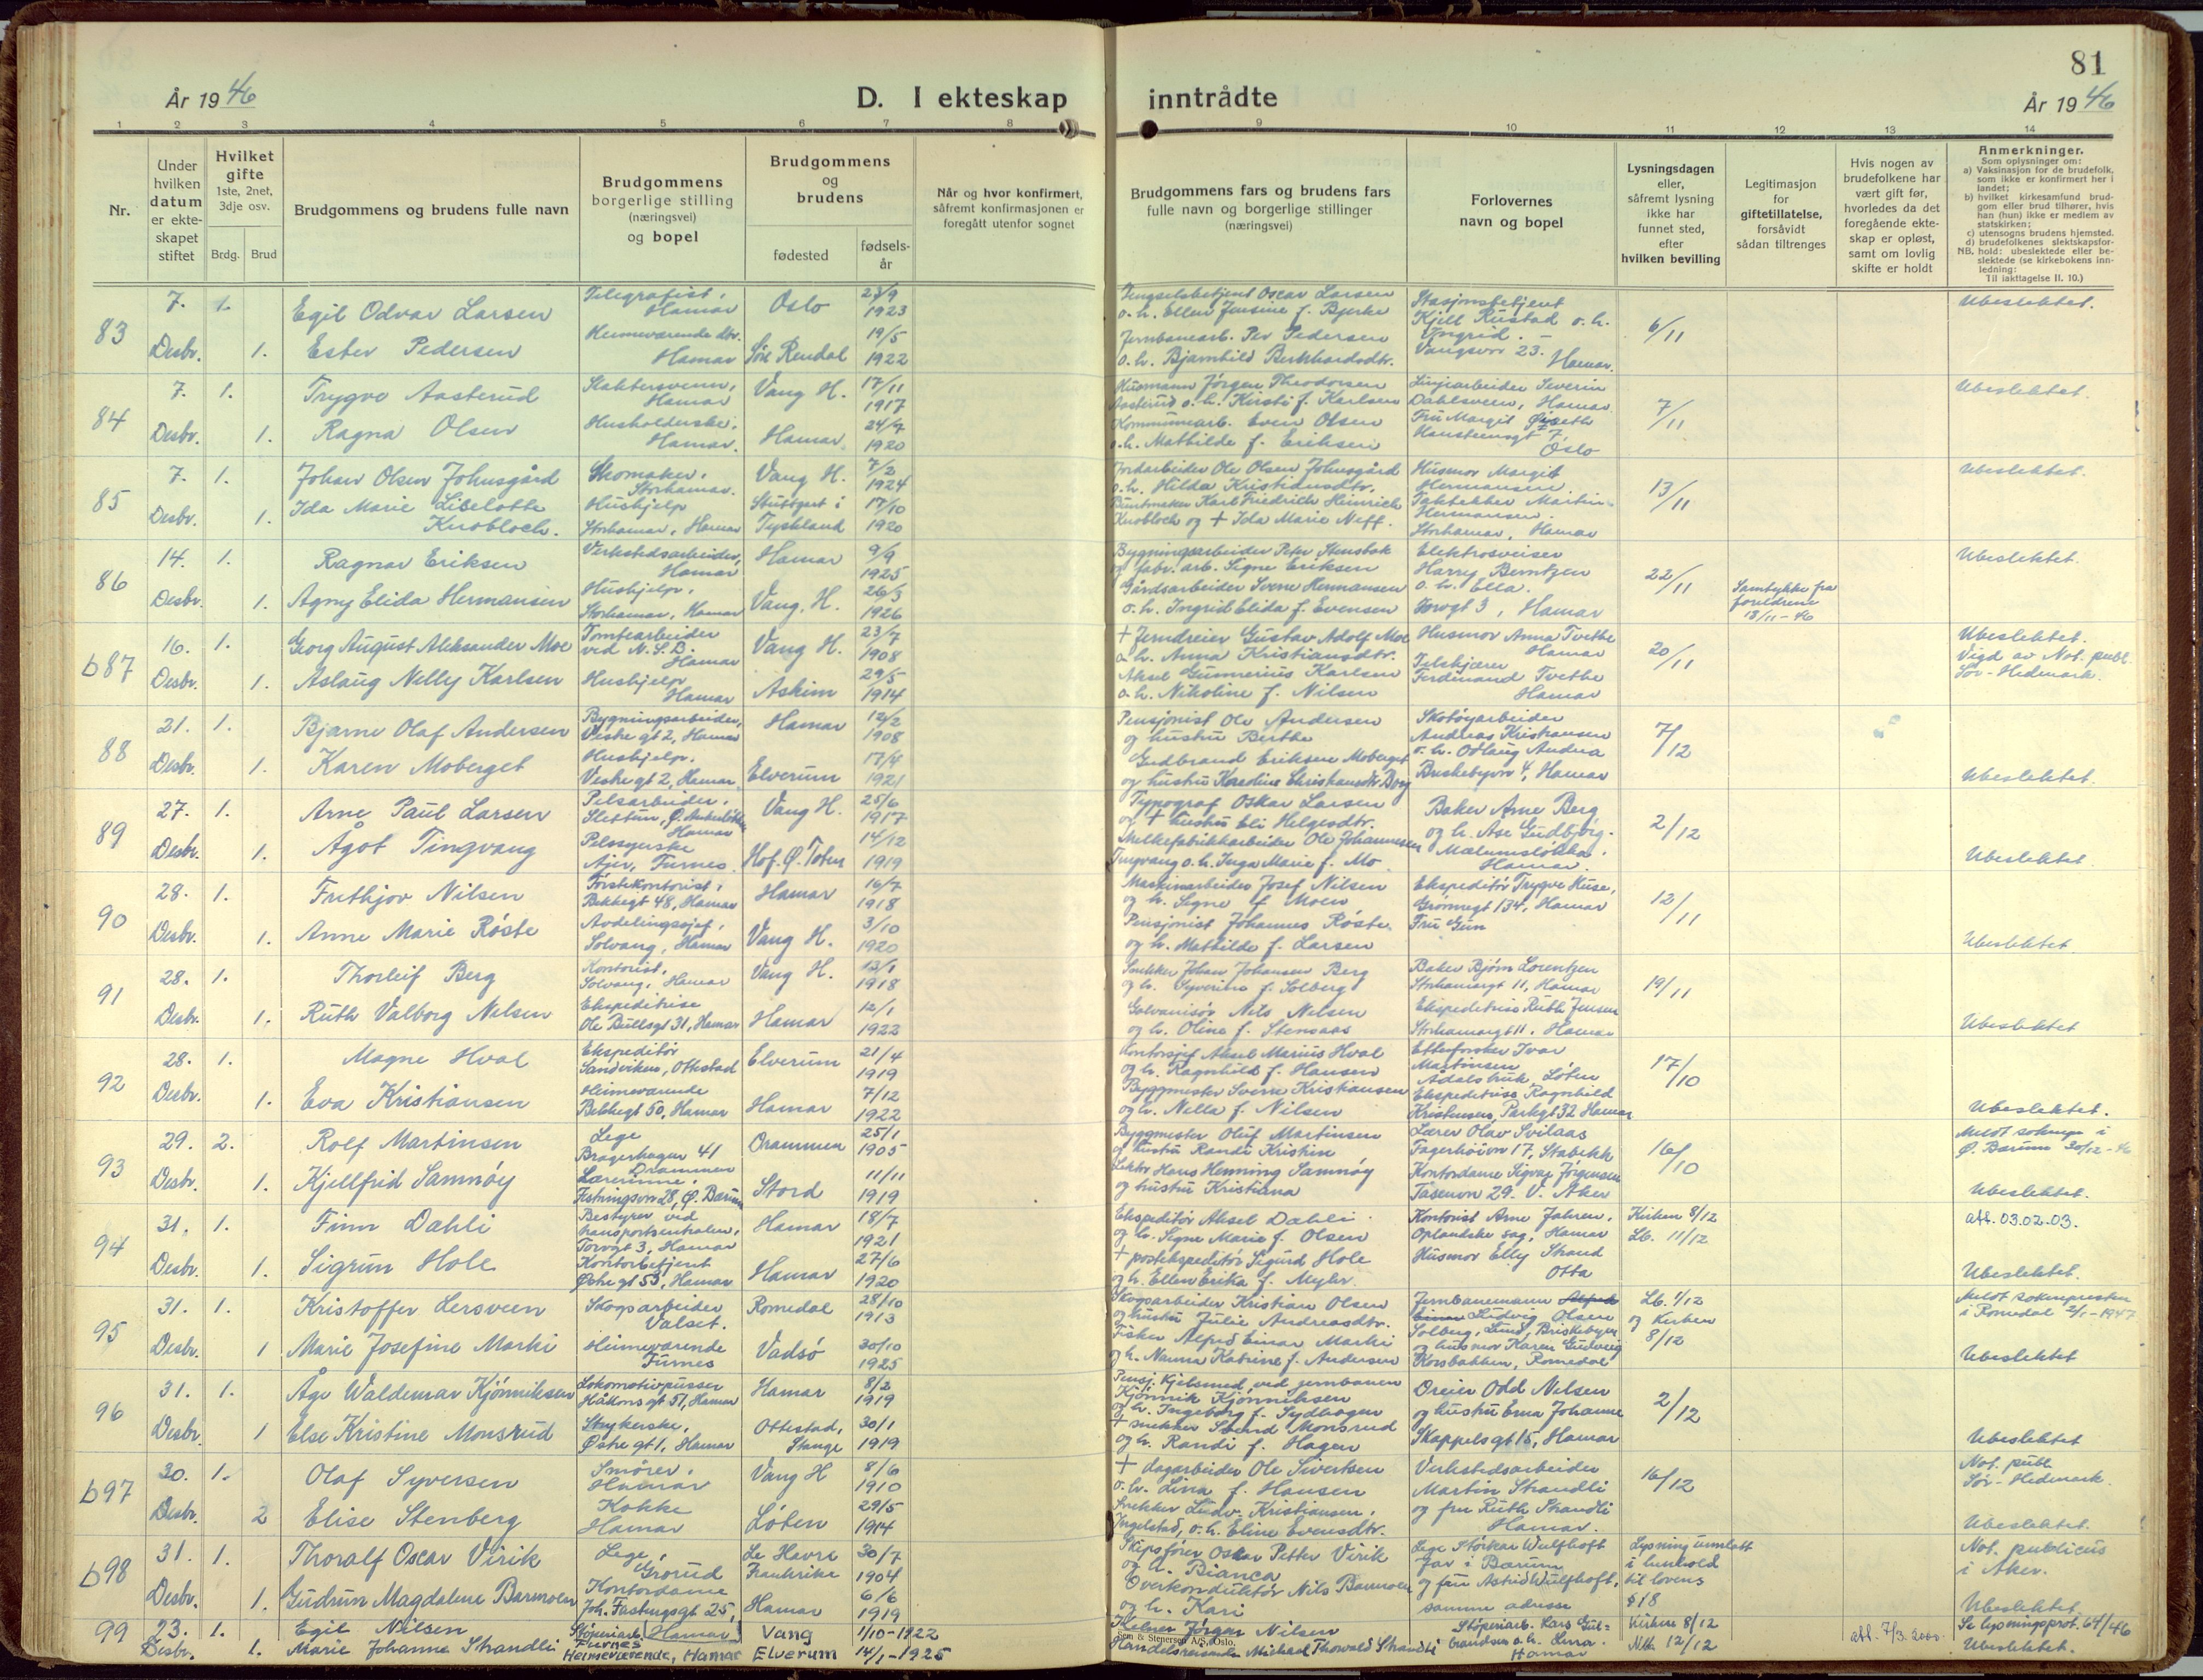 81
År 1946
D. I ekteskap inntrådte
År 1946
1 2 3 4 5 6 7 8 9 10 11 12 13 14
Nr.
Under
hvilken
datum
er ekte-
skapet
stiftet
Hvilket
gifte
1ste, 2net,
3dje osv.
Brdg. Brud
Brudgommens og brudens fulle navn
Brudgommens
borgerlige stilling
(næringsvei)
og bopel
Brudgommens
og
brudens
fødested
fødsels-
år
Når og hvor konfirmert,
såfremt konfirmasjonen er
foregått utenfor sognet
Brudgommens fars og brudens fars
fulle navn og borgerlige stillinger
(næringsvei)
Forlovernes
navn og bopel
Lysningsdagen
eller,
såfremt lysning
ikke har
funnet sted,
efter
hvilken bevilling
Legitimasjon
for
giftetillatelse,
forsåvidt
sådan tiltrenges
Hvis nogen av
brudefolkene har
vært gift før,
hvorledes da det
foregående ekte-
skap er opløst,
samt om lovlig
skifte er holdt
Anmerkninger.
Som oplysninger om:
a) Vaksinasjon for de brudefolk,
som ikke er konfirmert her i
landet;
b) hvilket kirkesamfund brud-
gom eller brud tilhører, hvis
han (hun) ikke er medlem av
statskirken;
c) utensogns brudens hjemsted.
d) brudefolkenes slektskapsfor-
NB. hold: ubeslektede eller be-
slektede (se kirkebokens inn-
ledning:
Til iakttagelse II. 10.)
83
7. Desbr. 1. 1.
Egil Odvar Larsen
Ester Pedersen
Telegrafist,
Hamar
Heimeværende dtr.
Hamar
Oslo
23/9
1923
Søre Rendal
19/5
1922
Fengselsbetjent Oscar Larsen
o.h. Ellen Jensine f. Bjerke
Jernbanearb. Per Pedersen
o.h. Bjarnhild Burkhardsdtr.
Stasjonsbetjent
Kjell Rustad o.h.
Yngrid. –
Vangsvn 23.
Hamar.
6/11
Ubeslektet.
84
7. Desbr. 1. 1.
Trygve Aasterud
Ragna Olsen
Slaktersvenn,
Hamar
Husholderske,
Hamar.
Vang H.
17/11
1917
Hamar
24/4
1920
Husmann Jørgen Theodorsen
Aasterud o.h. Kirsti f. Karlsen
Kommunearb. Even Olsen
o.h. Mathilde f. Eriksen
Linjearbeider Severin
Dahlsveen, Hamar
Fru Margit
Hausteensgt 7,
Oslo
7/11
Ubeslektet.
85
7. Desbr. 1. 1.
Johan Olsen Johnsgård
Ida Marie Liselotte
Knobloch.
Skomaker,
Storhamar.
Hushjelp
Storhamar, Hamar
Vang H.
7/2
1924
Stuttgart i
Tyskland
17/10
1920
Jordarbeider Ole Olsen Johnsgård
o.h. Hilda Kristiansdtr.
Buntmaker Karl Friedrich Heinrich
Knobloch og + Ida Marie Neff.
Husmor Margit
Hermansen
Taktekker Martin
Hermansen.
Storhamar, Hamar
13/11
Ubeslektet.
86
14. Desbr. 1. 1.
Ragnar Eriksen
Agny Elida Hermansen
Verkstedsarbeider,
Hamar
Hushjelp,
Storhamar, Hamar
Hamar
9/9
1925
Vang, H.
26/3
1926
Bygningsarbeider Peter Stensbak
og fabr. arb. Signe Eriksen
Gårdsarbeider Sverre Hermansen
o.h. Ingrid Elida f. Evensen
Elektrosveiser
Harry Berntzen
o.h. Ella.
Torvgt 3, Hamar
22/11
Samtykke fra
foreldrene
13/11-46
Ubeslektet.
b87
16. Desbr. 1. 1.
Georg August Aleksander Moe
Aslaug Nelly Karlsen
Tomtearbeider
ved N.S.B.
Hamar
Hushjelp
Hamar
Vang H.
23/7
1908
Askim
29/5
1914
+ Jerndreier Gustav Adolf Moe
o.h. Anna Kristiansdtr.
Aksel Gunnerius Karlsen
o.h. Nikoline f. Nilsen
Husmor Anna Tvethe
Hamar
Telskjærer
Ferdinand Tvethe
Hamar
20/11
Ubeslektet.
Vigd av Not. publ.
Sør-Hedmark.
88
21. Desbr. 1. 1.
Bjarne Olaf Andersen
Karen Moberget
Bygningsarbeider,
Vestre gt 2, Hamar
Hushjelp.
Vestre gt 2, Hamar
Hamar
12/2
1908
Elverum
17/4
1921
Pensjonist Ole Andersen
og hustru Berthe
Gudbrand Eriksen Moberget
og hustru Karoline Christiansdtr Borg
Skotøyarbeider
Andreas Kristiansen
o.h. Odlaug Andrea
Briskebyvn 4, Hamar
7/12
Ubeslektet.
89
27. Desbr. 1. 1.
Arne Paul Larsen
Ågot Tingvang
Pelsarbeider,
Slettun, Ø. Ankerløkken
Hamar
Pelssyerske
Ajer, Furnes
Vang H.
25/6
1917
Hof. Ø. Toten
14/12
1919
Typograf Oskar Larsen
og + hustru Eli Helgesdtr.
Melkefabrikkarbeider Ole Johannessen
Tingvang o.h. Inga Marie f. Mo
Baker Arne Berg
og h. Åse Gudbjørg.
Mælumsløkka,
Hamar.
2/12
Ubeslektet.
90
28. Desbr. 1. 1.
Frithjov Nilsen
Anne Marie Røste
Førstekontorist,
Bekkegt 48, Hamar
Avdelingssjef,
Solvang, Hamar
Hamar
16/7
1918
Vang H.
3/10
1920
Maskinarbeider Josef Nilsen
og h. Signe f. Moen
Pensjonist Johannes Røste
og h. Mathilde f. Larsen
Ekspeditør Trygve Kuse,
Grønnegt 134, Hamar
Fru Gun
12/11
Ubeslektet
91
28. Desbr. 1. 1.
Thorleif Berg
Ruth Valborg Nilsen
Kontorist,
Solvang, Hamar
Ekspeditrise
Ole Bullsgt 31, Hamar
Vang H.
13/1
1918
Hamar
12/1
1922
Snekker Johan Johansen Berg
og h. Syverine f. Solberg
Galvanisør Nils Nilsen
og h. Oline f. Stensaas
Baker Bjørn Lorentzen
Storhamargt 11, Hamar
Ekspeditrise Ruth Jensen
Storhamargt 11, Hamar
19/11
Ubeslektet
92
28. Desbr. 1. 1.
Magne Hval
Eva Kristiansen
Ekspeditør
Sandviken, Ottestad
Heimeværende
Bekkegt 50, Hamar
Elverum
21/4
1919
Hamar
7/12
1922
Kontorsjef Aksel Marius Hval
og h. Ragnhild f. Hansen
Byggmester Sverre Kristiansen
og h. Nella f. Nilsen
Etterforsker Ivar
Martinsen
Ådalsbruk, Løten
Ekspeditrise Ragnhild
Kristensen, Parkgt 32 Hamar
17/10
Ubeslektet.
93
29. Desbr. 2. 1.
Rolf Martinsen
Kjellfrid Samnøy
Lege
Bragerhagen 41
Drammen
Lærerinne,
Ø. Bærum
Drammen
25/1
1905
Stord
11/11
1919
Byggmester Oluf Martinsen
og hustru Randi Kristine
Lektor Hans Henning Samnøy
og hustru Kristiana
Lærer Olav Svilaas
Fagerhøivn 17, Stabekk
Kontordame Sigvar Jørgensen
Tåsenvn 29. V. Aker
16/10
Meldt sokneprest i
Ø. Bærum 30/12-46
Ubeslektet.
94
31. Desbr. 1. 1.
Finn Dahli
Sigrun Hole
Bestyrer ved
transportsentralen,
Torvgt 3, Hamar
Kontorbetjent
Østre gt 53, Hamar
Hamar
18/7
1921
Hamar
27/6
1920
Ekspeditør Aksel Dahli
og h. Signe Marie f. Olsen
+ postekspeditør Sigurd Hole
og h. Ellen Erika f. Myhr.
Kontorist Arne Jahren,
Oplandske sag, Hamar
Husmor Elly Strand
Otta
Kirken 8/12
Lb. 11/12
att. 03.02.03.
Ubeslektet.
95
31. Desbr. 1. 1
Kristoffer Lersveen
Marie Josefine Marki
Skogsarbeider
Valset.
Heimeværende
Furnes
Romedal
28/10
1913
Vadsø
30/10
1925
Skogsarbeider Kristian Olsen
og hustru Julie Andreasdtr.
Fisker Alfred Einar Marki
og h. Nanna Katrine f. Andersen
Jernbanemann Alfred
Einar Ludvig Olsen
Solberg, Lund, Briskebyen
og husmor Karen Gudveig
Korsbakken, Romedal
Lb. 1/12
og Kirken
8/12
Meldt soknepresten
i Romedal 2/1-1947
Ubeslektet
96
31. Desbr. 1. 1
Åge Waldemar Kjønniksen
Else Kristine Monsrud
Lokomotivpusser
Håkons gt 51, Hamar
Strykerske,
Østre gt 1, Hamar
Hamar
8/2
1919
Ottestad,
Stange
30/1
1919
Pensj. Kjelsmed ved jernbanen
Kjønnik Kjønniksen
og h. Ingeborg f. Sydhagen
+ snekker Svend Monsrud
og h. Randi f. Hagen
Dreier Odd Nilsen
og hustru Erna Johanne
Skappelsgt 15, Hamar
2/12
Ubeslektet
b97
30. Desbr. 1. 2
Olaf Syversen
Elise Stenberg
Smører,
Hamar
Kokke
Hamar
Vang H
8/6
1910
Løten
29/5
1914
+ dagarbeider Ole Sivertsen
o.h. Lina f. Hansen
Snekker Ludv. Kristiansen,
Ingelstad, o.h. Eline Evensdtr.
Verkstedsarbeider
Martin Strandli
og fru Ruth Strandli
Hamar.
16/12
Not. publ
Sør-Hedmark.
Ubeslektet.
b98
31. Desbr. 1. 1.
Thoralf Oscar Virik
Gudrun Magdalene Barmoen
Lege,
Grorud
Kontordame
Joh. Fastingsgt 25,
Le Havre
Frankrike
30/7
1904
Hamar
6/6
1919
Skipsfører Oskar Petter Virik
og h. Bianca
Overkonduktør Nils Barmoen
og h. Kari
Lege Størkar Wulfhoft
Jar i Bærum
og fru Astrid Wulfhoft,
samme adresse
Lysning unnlatt
i henhold
til lovens
§ 18
Not. publicus
i Aker.
Ubeslektet.
99
23. Desbr. 1. 1.
Egil Nilsen
Marie Johanne Strandli
Støperiarb. (Hamar)
Furnes
Heimeværende, Hamar
Vang
1/10-1922
Elverum
14/1-1925
Kelner Jørgen Nilsen
Sem & Stenersen A/S, Oslo.
Handelsreisende Michael Thorvald Strandli
Støperiarb. Lars Gul-
brandsen o.h. Lina.
Hamar
Kirkene 8/12
Nbl. 12/12
att. 7/3. 2000.
Se lysningsprot. 64/46
Ubeslektet.